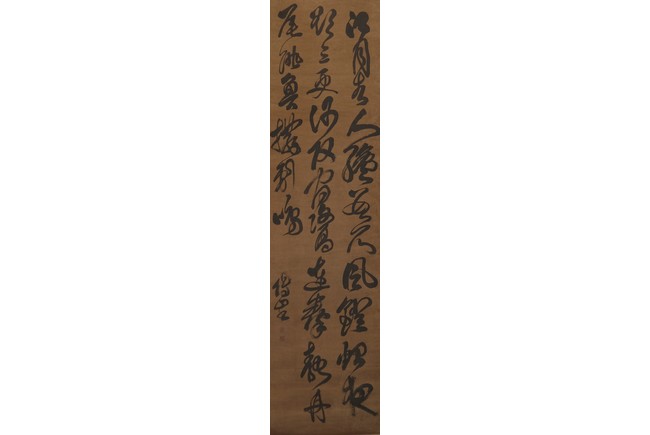 江月去人纔數尺風鐙照夜
欲三更沙頭宿鷺連拳靜舟
尾跳魚撥剌鳴
傅山